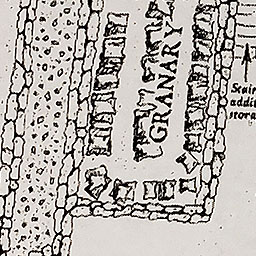 GRANARY
Stair
addit
stora